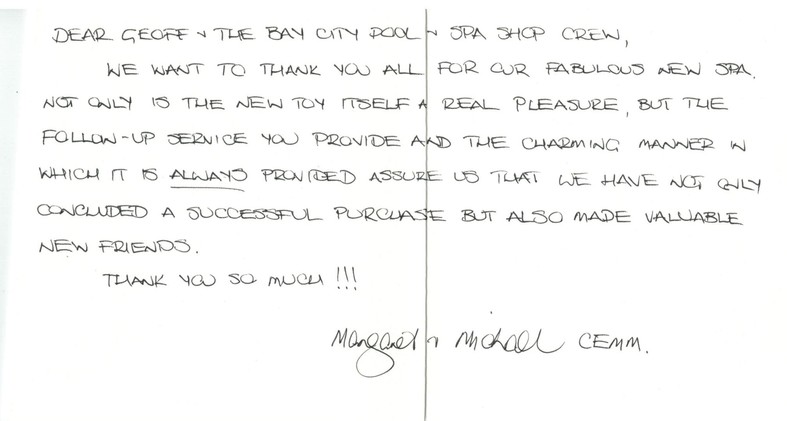 DEAR GEOFF & THE BAY CITY POOL & SPA SHOP CREW,
WE WANT TO THANK YOU ALL FOR OUR FABULOUS NEW SPA.
NOT ONLY IS THE NEW TOY ITSELF A REAL PLEASURE, BUT THE
FOLLOW-UP SERVICE YOU PROVIDE AND THE CHARMING MANNER IN
WHICH IT IS ALWAYS PROVIDED ASSURE US THAT WE HAVE NOT ONLY
CONCLUDED A SUCCESSFUL PURCHASE BUT ALSO MADE VALUABLE
NEW FRIENDS.
THANK YOU SO MUCH!!!
Margaret & Michael CEMM.